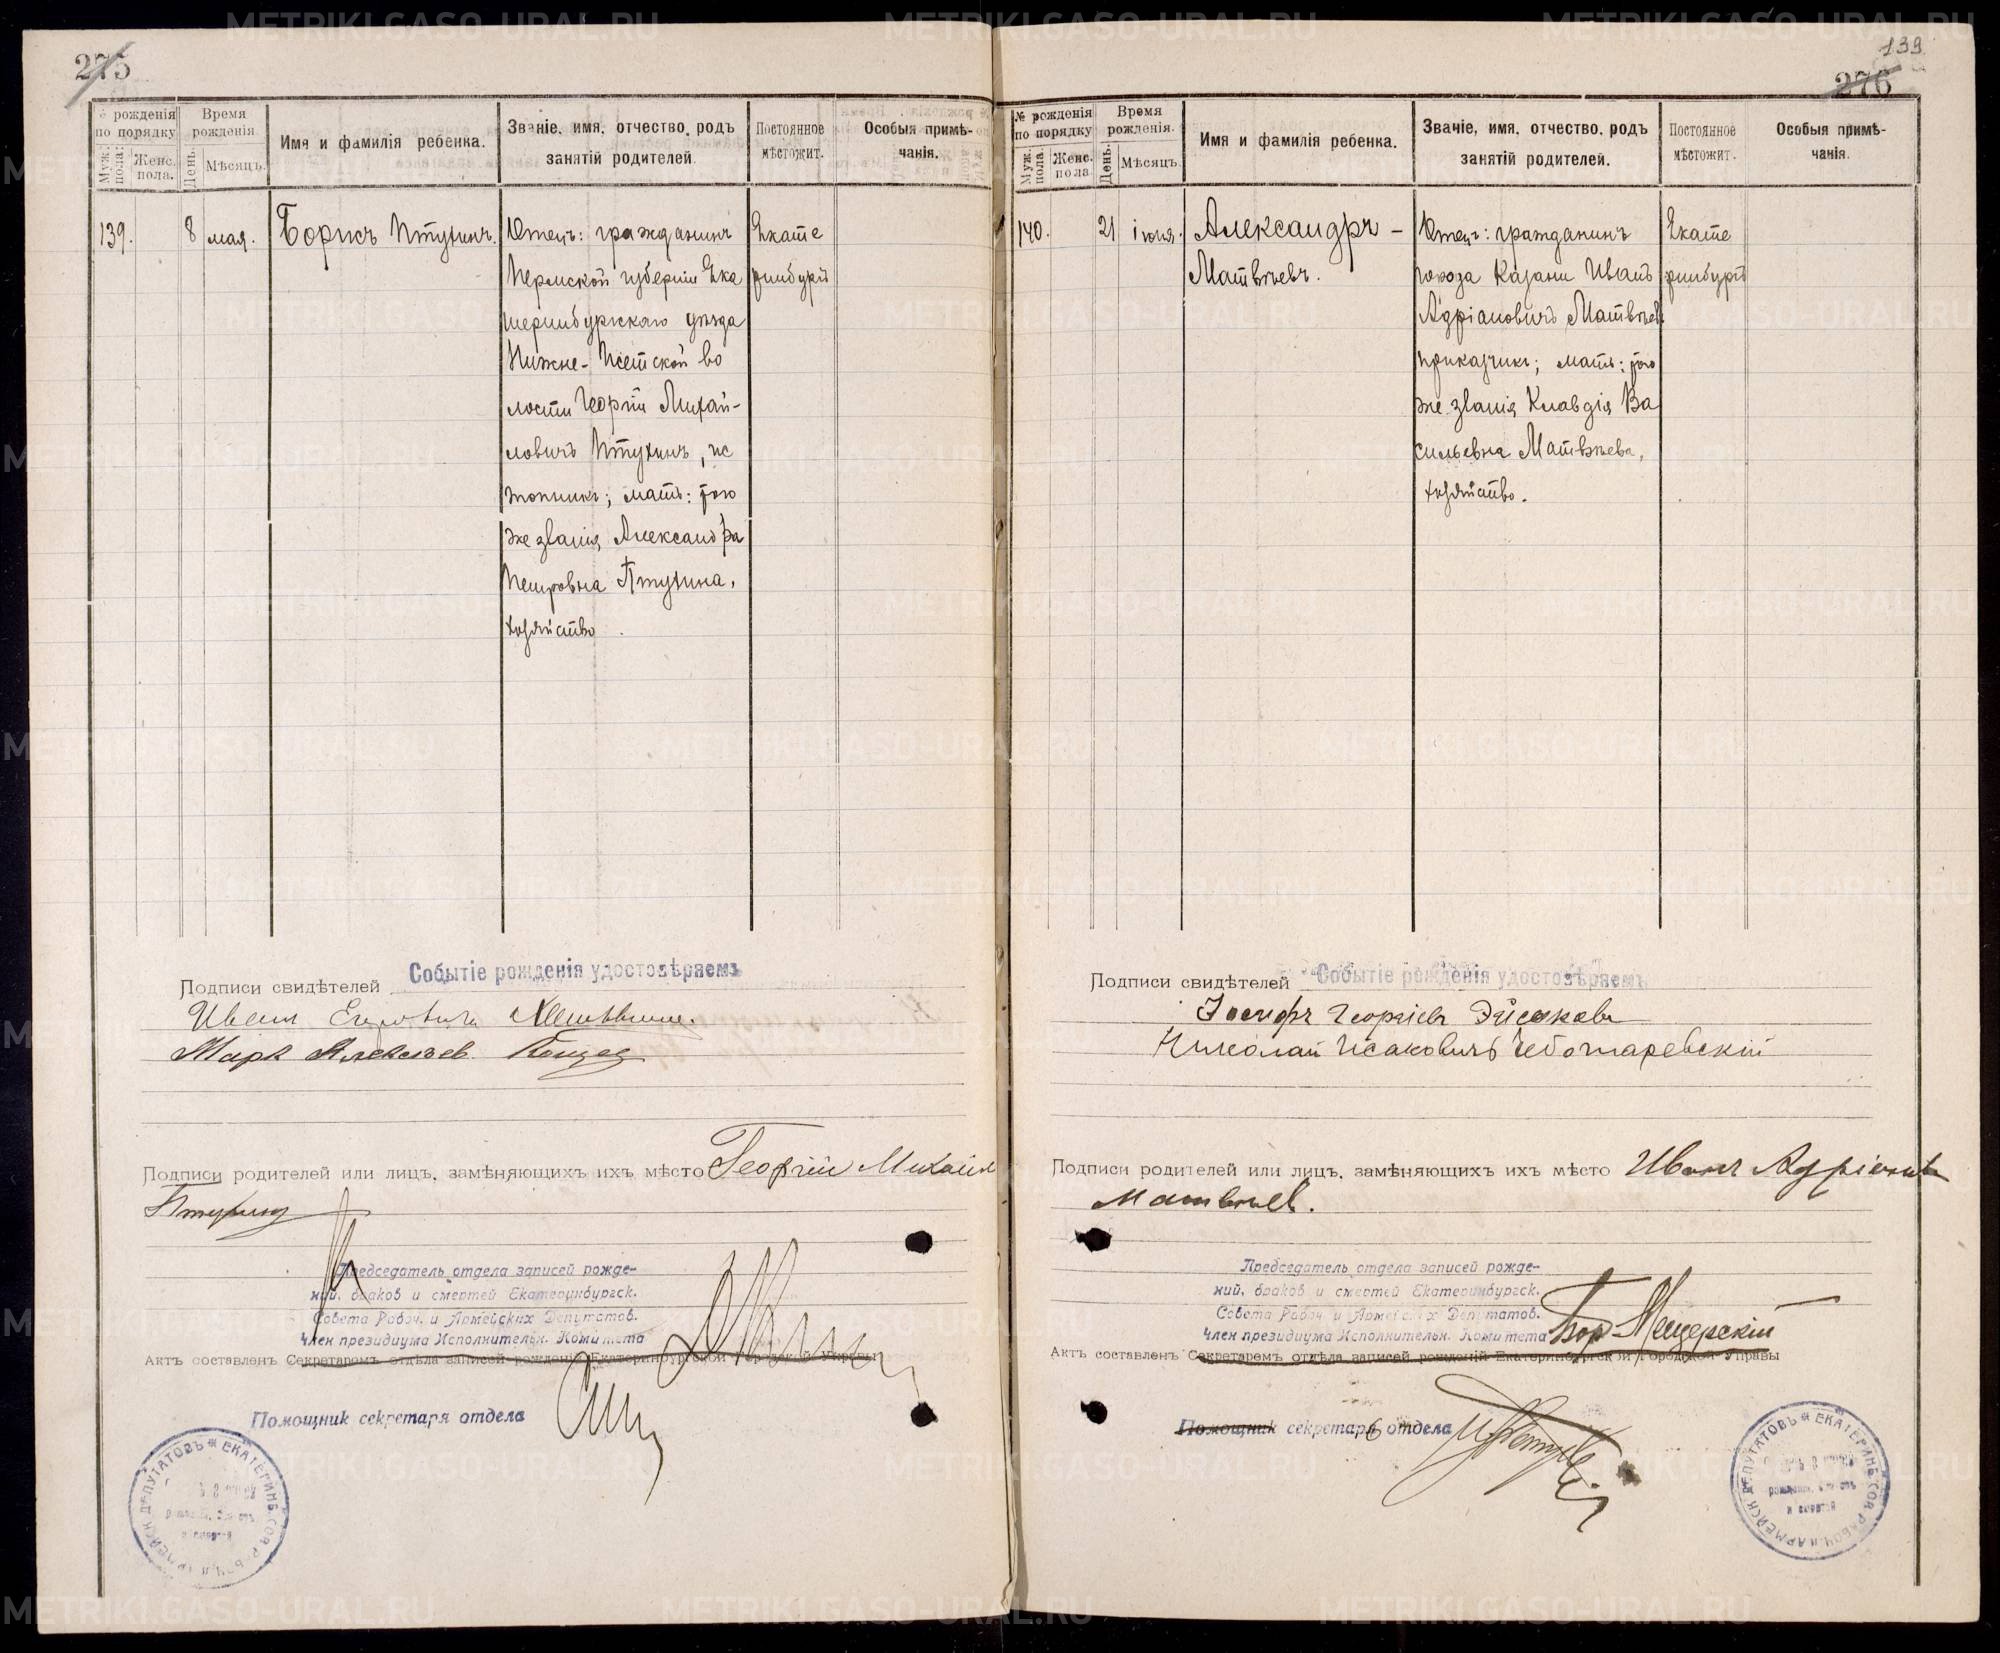 275
№ рожденія по порядку
Муж. пола.
Женс. пола.
Время рожденія.
День.
Мѣсяцъ.
Имя и фамилія ребенка.
Званіе, имя, отчество, родъ
занятій родителей.
Постоянное
мѣстожит.
Особыя примѣ-
чанія.
139.
8
мая.
Борисъ Птухинъ.
Отецъ: гражданинъ
Пермской губерніи Ека
теринбургскаго уѣзда
Нижне-Исетской во
лости Георгій Михай-
ловичъ Птухинъ, ис
топникъ; мать: того
же званія Александра
Петровна Птухина,
хозяйство.
Екате
ринбургъ
Подписи свидѣтелей Событіе рожденія удостовѣряемъ
Иванъ
Маркъ Алексѣев
Подписи родителей или лицъ, замѣняющихъ ихъ мѣсто Георгій Михайл
Птухинъ
Председатель отдела записей рожде-
ний, браков и смертей Екатеринбургск.
Совета Рабоч. и Армейских Депутатов.
Член президиума Исполнительн. Комитета
Актъ составленъ Секретаремъ отдѣла записей рожденій Екатеринбургской Городской Управы
Помощник секретаря отдела
139
276
№ рожденія по порядку
Муж. пола.
Женс. пола
Время рожденія.
День.
Мѣсяцъ.
Имя и фамилія ребенка.
Званіе, имя, отчество, родъ
занятій родителей.
Постоянное
мѣстожит.
Особыя примѣ-
чанія.
140.
21
іюня.
Александръ –
Матвѣевъ.
Отецъ: гражданинъ
города Казани Иванъ
Адріановичъ Матвѣев
приказчикъ; мать: того
же званія Клавдія Ва
сильевна Матвѣева,
хозяйство.
Екате
ринбургъ
Подписи свидѣтелей Событіе рожденія удостовѣряемъ
Іосифъ Георгіев
Николай Исаковичъ Чеботаревскій
Подписи родителей или лицъ, замѣняющихъ ихъ мѣсто Иванъ Адріанов
Матвѣев.
Председатель отдела записей рожде-
ний, браков и смертей Екатеринбургск.
Совета Рабоч. и Армейских Депутатов.
Член президиума Исполнительн. Комитета Бор. Мещерскій
Актъ составленъ Секретаремъ отдѣла записей рожденій Екатеринбургской Городской Управы
Помощник секретаря отдела
METRIKI.GASO-URAL.RU